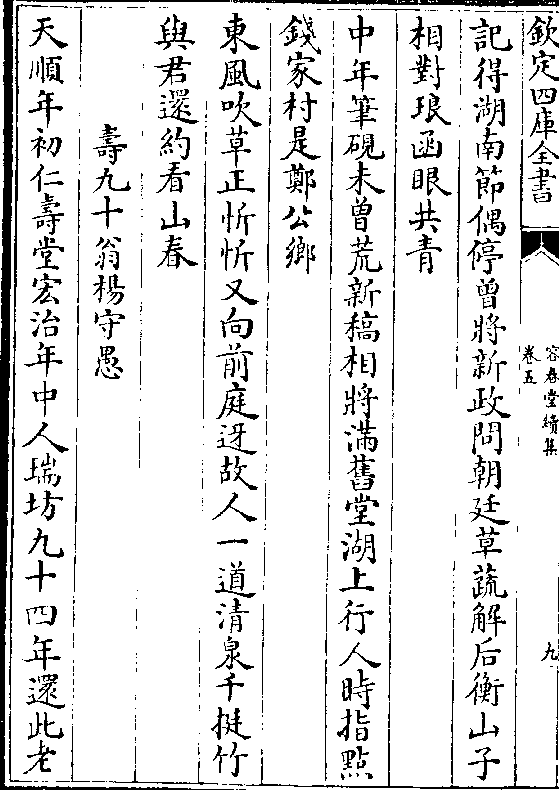 欽定四庫全書
容春堂續集
卷五
九
記得湖南節偶停曾將新政問朝廷草蔬解后衡山子
相對琅函眼共青
中年筆硯未曾荒新稿相將滿舊堂湖上行人時指點
錢家村是鄭公鄉
東風吹草正忻忻又向前庭迓故人一道清泉千挺竹
與君還約看山春
壽九十翁楊守愚
天順年初仁壽堂宏治年中人瑞坊九十四年還此老